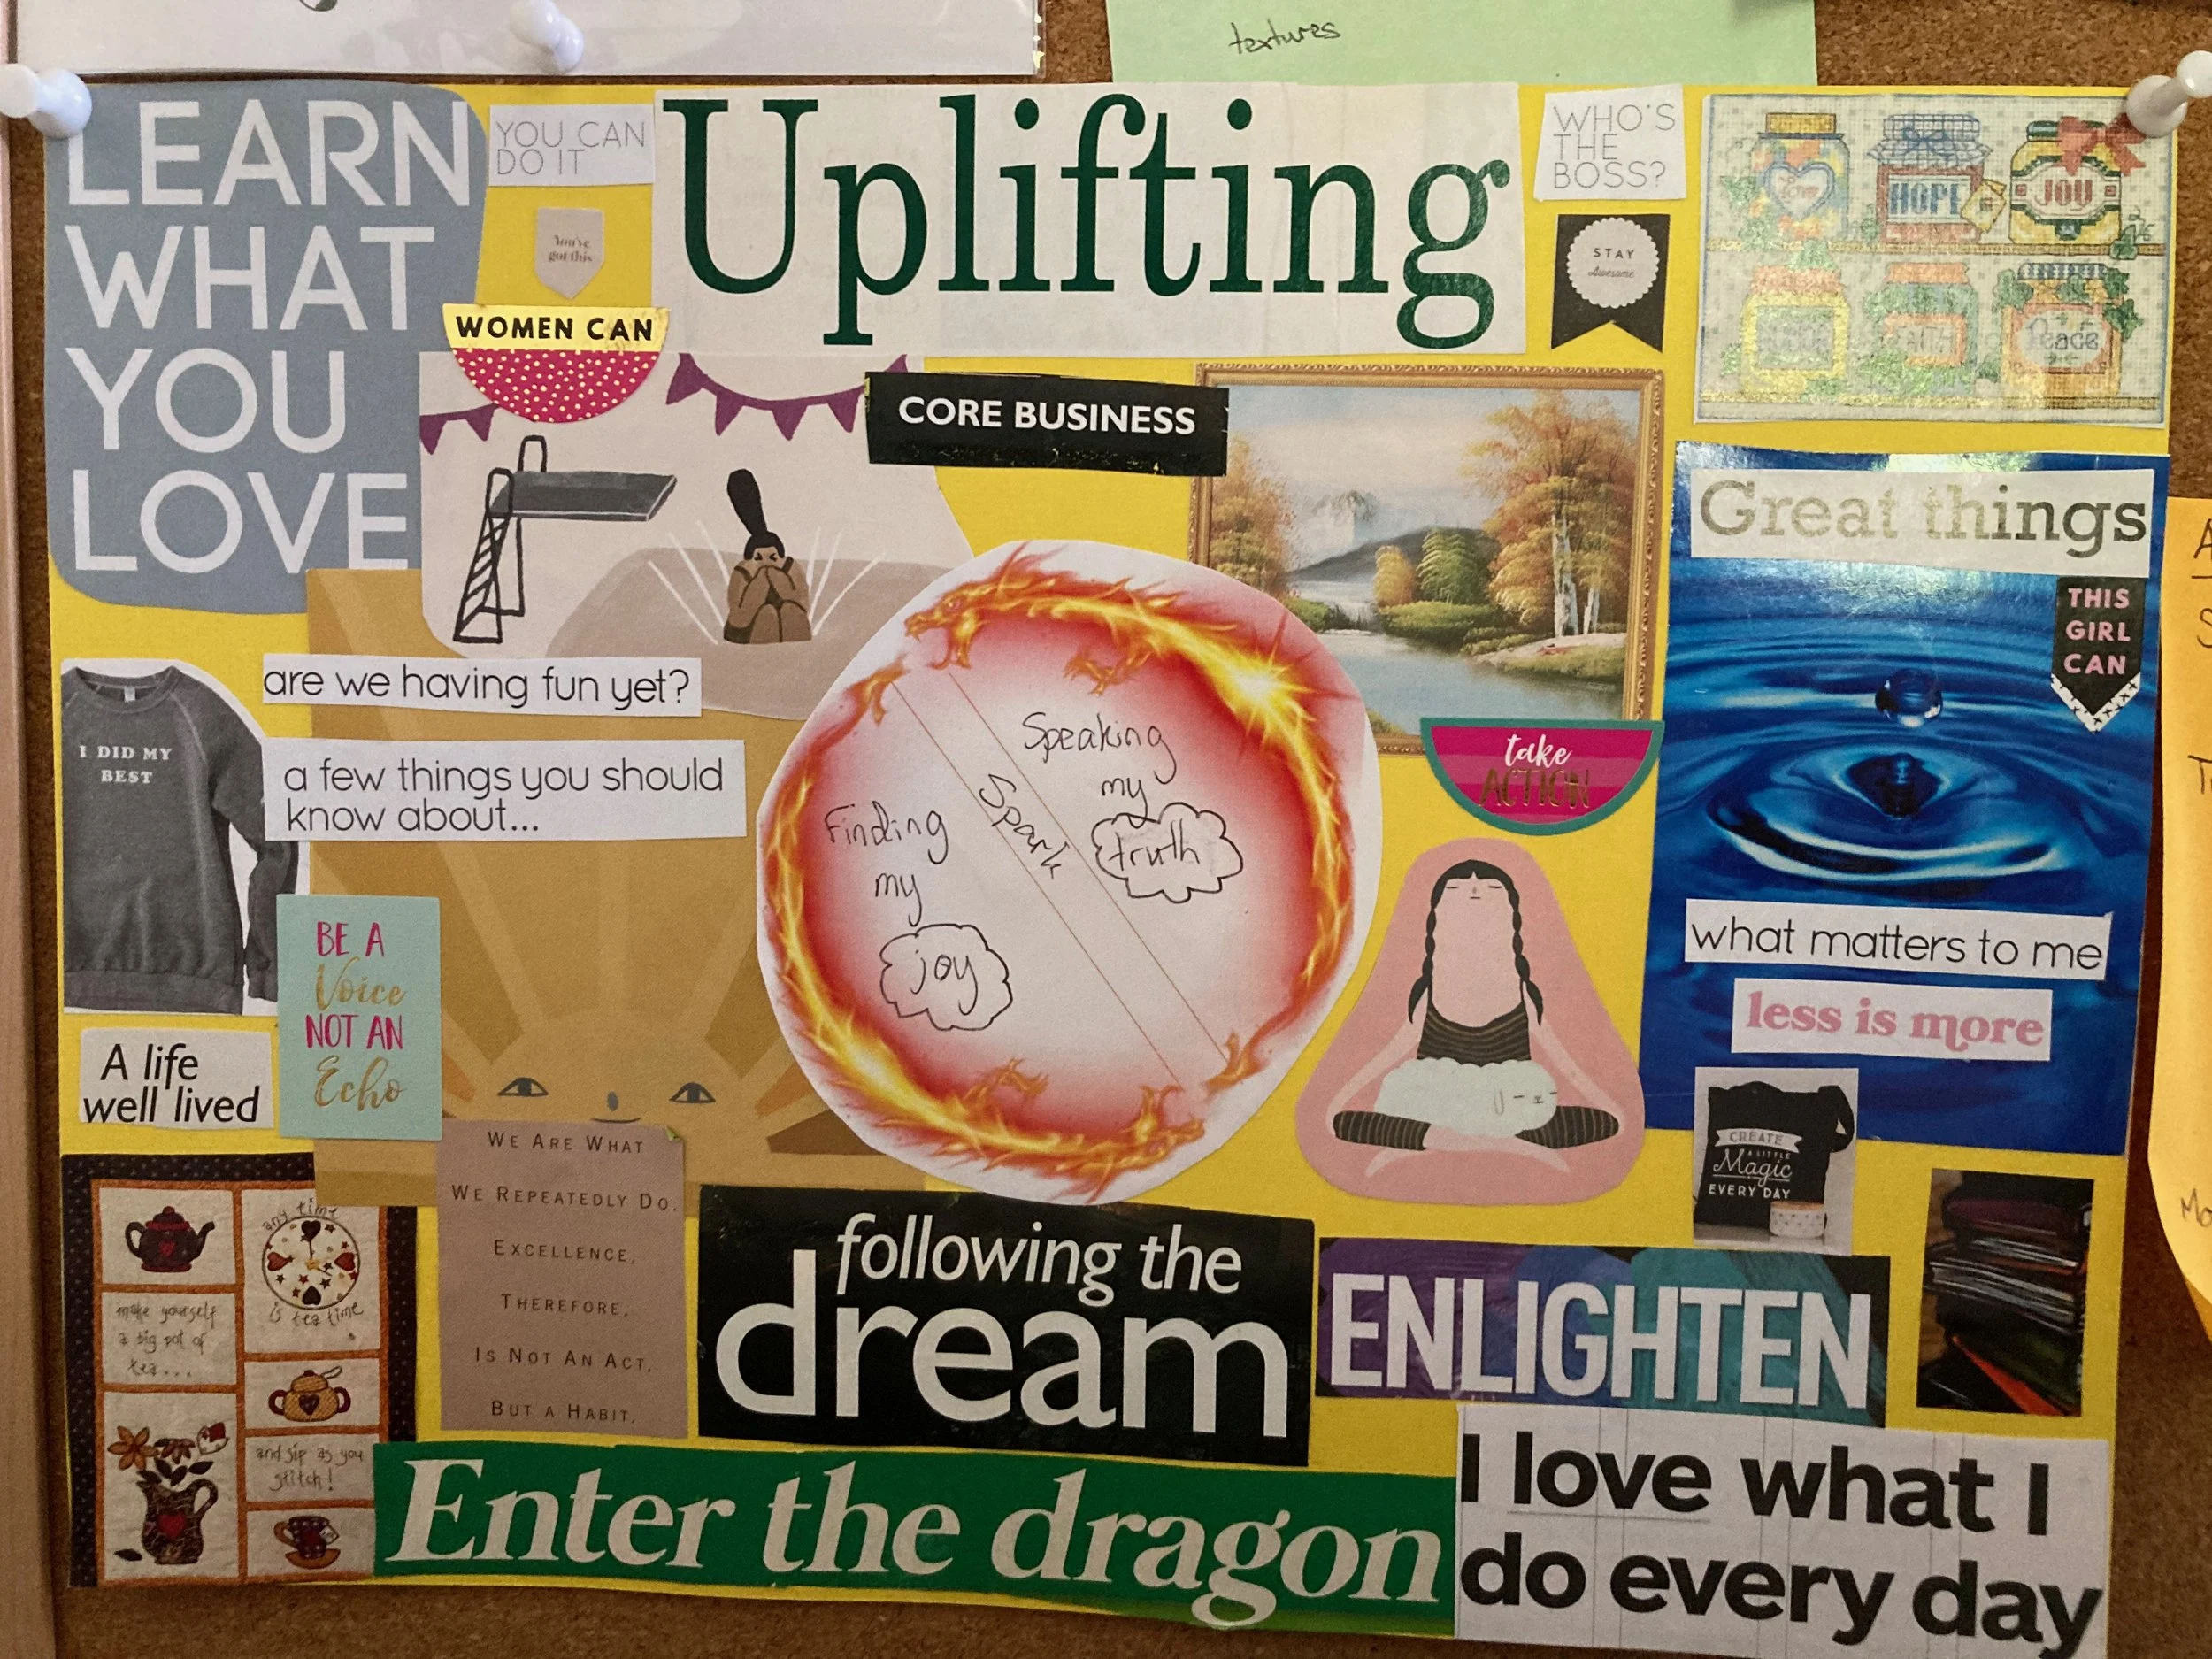 textures
LEARN
WHAT
YOU
LOVE
YOU CAN
DO IT
You've
got this
WOMEN CAN
Uplifting
WHO'S
THE
BOSS?
STAY
Awesome
HOPE
JOY
Peace
CORE BUSINESS
Great things
THIS
GIRL
CAN
are we having fun yet?
a few things you should
know about...
I DID MY
BEST
Finding
my
joy
Spark
Speaking
my
truth
take
ACTION
what matters to me
less is more
BE A
Voice
NOT AN
Echo
A life
well lived
CREATE
A LITTLE
Magic
EVERY DAY
WE ARE WHAT
WE REPEATEDLY DO.
EXCELLENCE,
THEREFORE,
IS NOT AN ACT,
BUT A HABIT.
any time
is tea time
make yourself
a big pot of
tea...
and sip as you
stitch!
following the
dream
ENLIGHTEN
Enter the dragon
I love what I
do every day